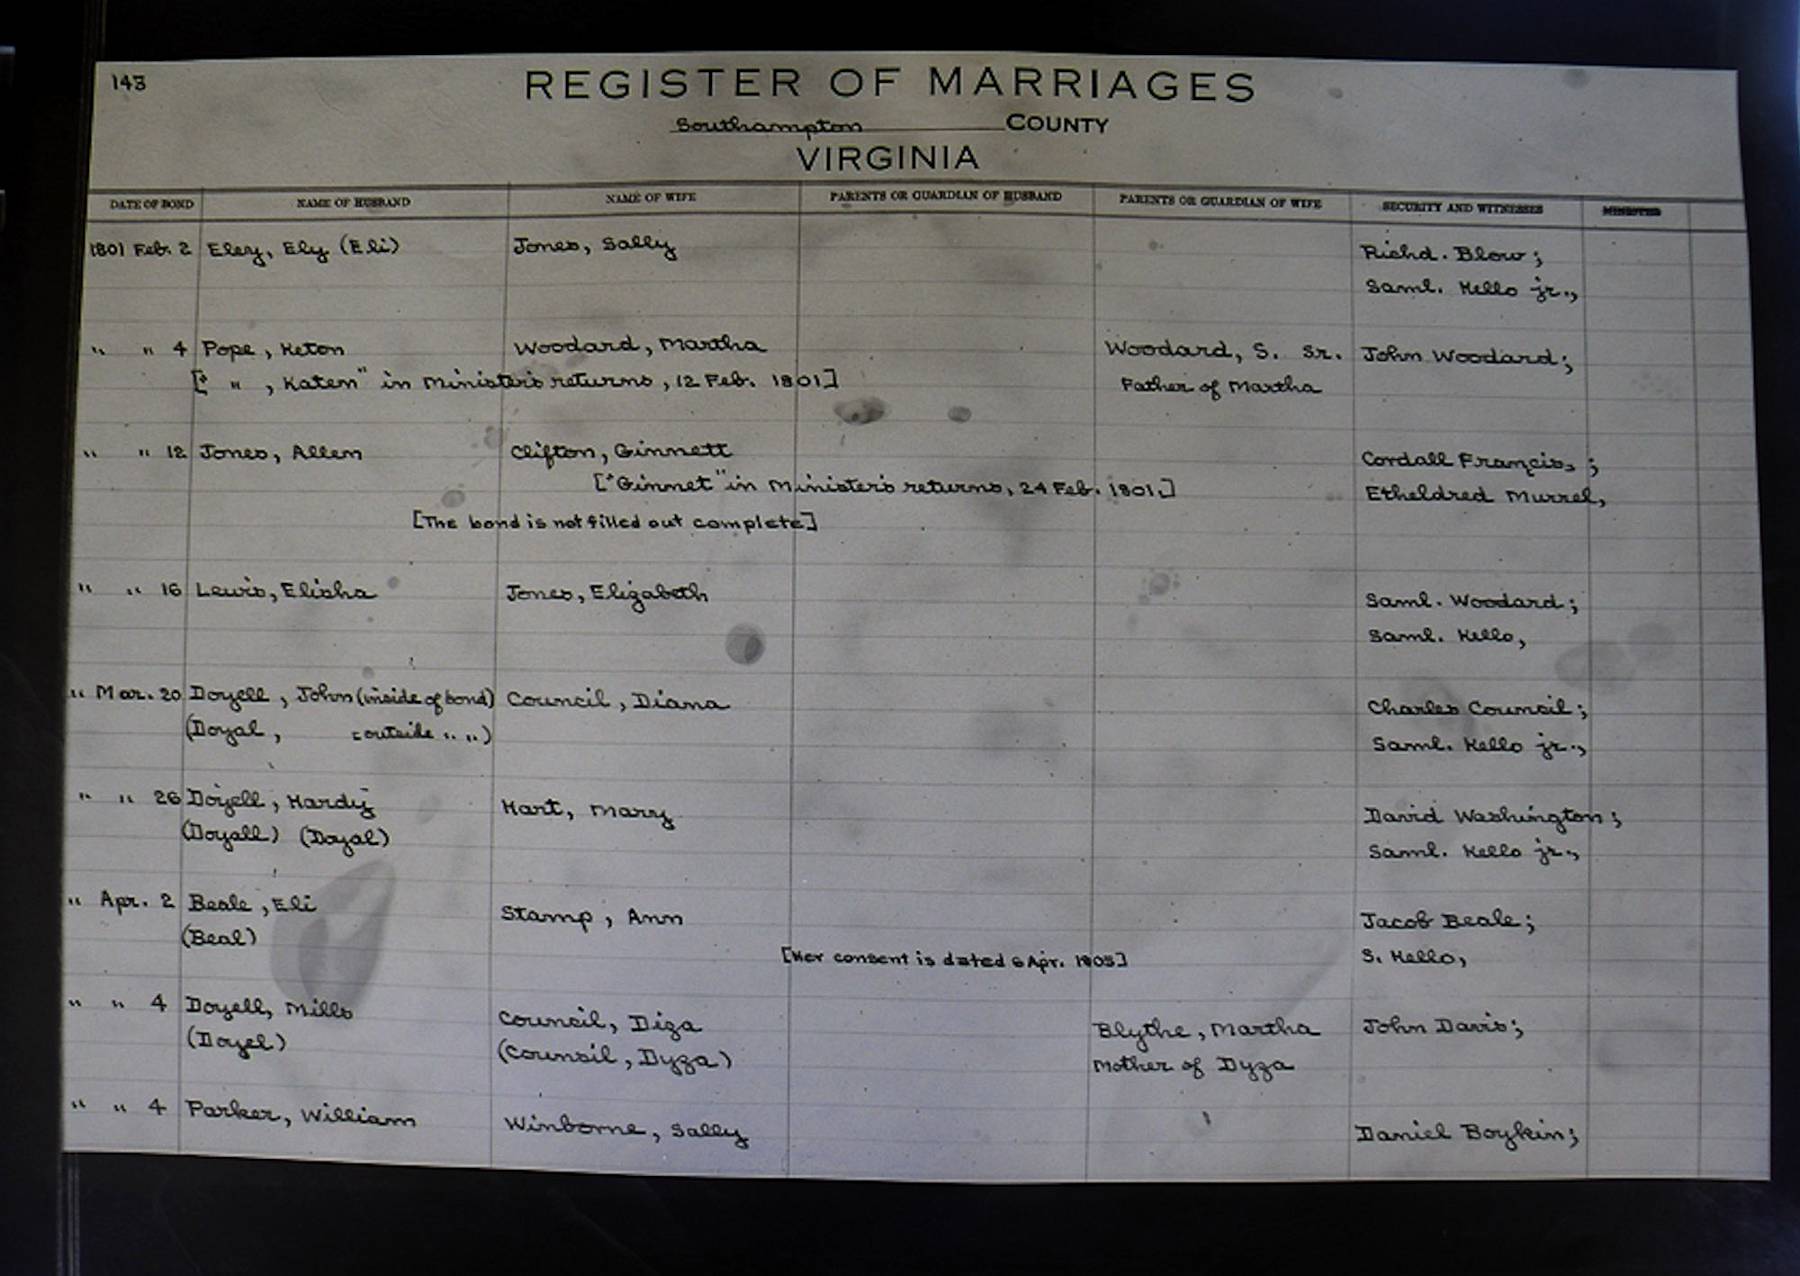 143
REGISTER OF MARRIAGES
Southampton COUNTY
VIRGINIA
DATE OF BOND NAME OF HUSBAND NAME OF WIFE PARENTS OR GUARDIAN OF HUSBAND PARENTS OR GUARDIAN OF WIFE SECURITY AND WITNESSES MINISTER
1801 Feb. 2 Eley, Ely (Eli) Jones, Sally Richd. Blow;
Saml. Kello jr.,
" " 4 Pope, Keton Woodard, Martha Woodard, S. Sr. John Woodard;
[" " , Katem" in Minister's returns, 12 Feb. 1801] Father of Martha
" " 12 Jones, Allen Clifton, Ginnett Cordall Francis, ;
["Ginnet" in Minister's returns, 24 Feb. 1801.] Etheldred Murrel,
[The bond is not filled out complete]
" " 16 Lewis, Elisha Jones, Elizabeth Saml. Woodard;
Saml. Kello,
" Mar. 20 Doyell, John (inside of bond) Council, Diana Charles Council;
(Doyal, outside " ") Saml. Kello jr.,
" " 26 Doyell, Hardy Hart, Mary David Washington;
(Doyall) (Doyal) Saml. Kello jr.,
" Apr. 2 Beale, Eli Stamp, Ann Jacob Beale;
(Beal) [Her consent is dated 6 Apr. 1805] S. Kello,
" " 4 Doyell, Mills Council, Diza Blythe, Martha John Davis;
(Doyel) (Counsil, Dyza) Mother of Dyza
" " 4 Parker, William Winborne, Sally Daniel Boykin;